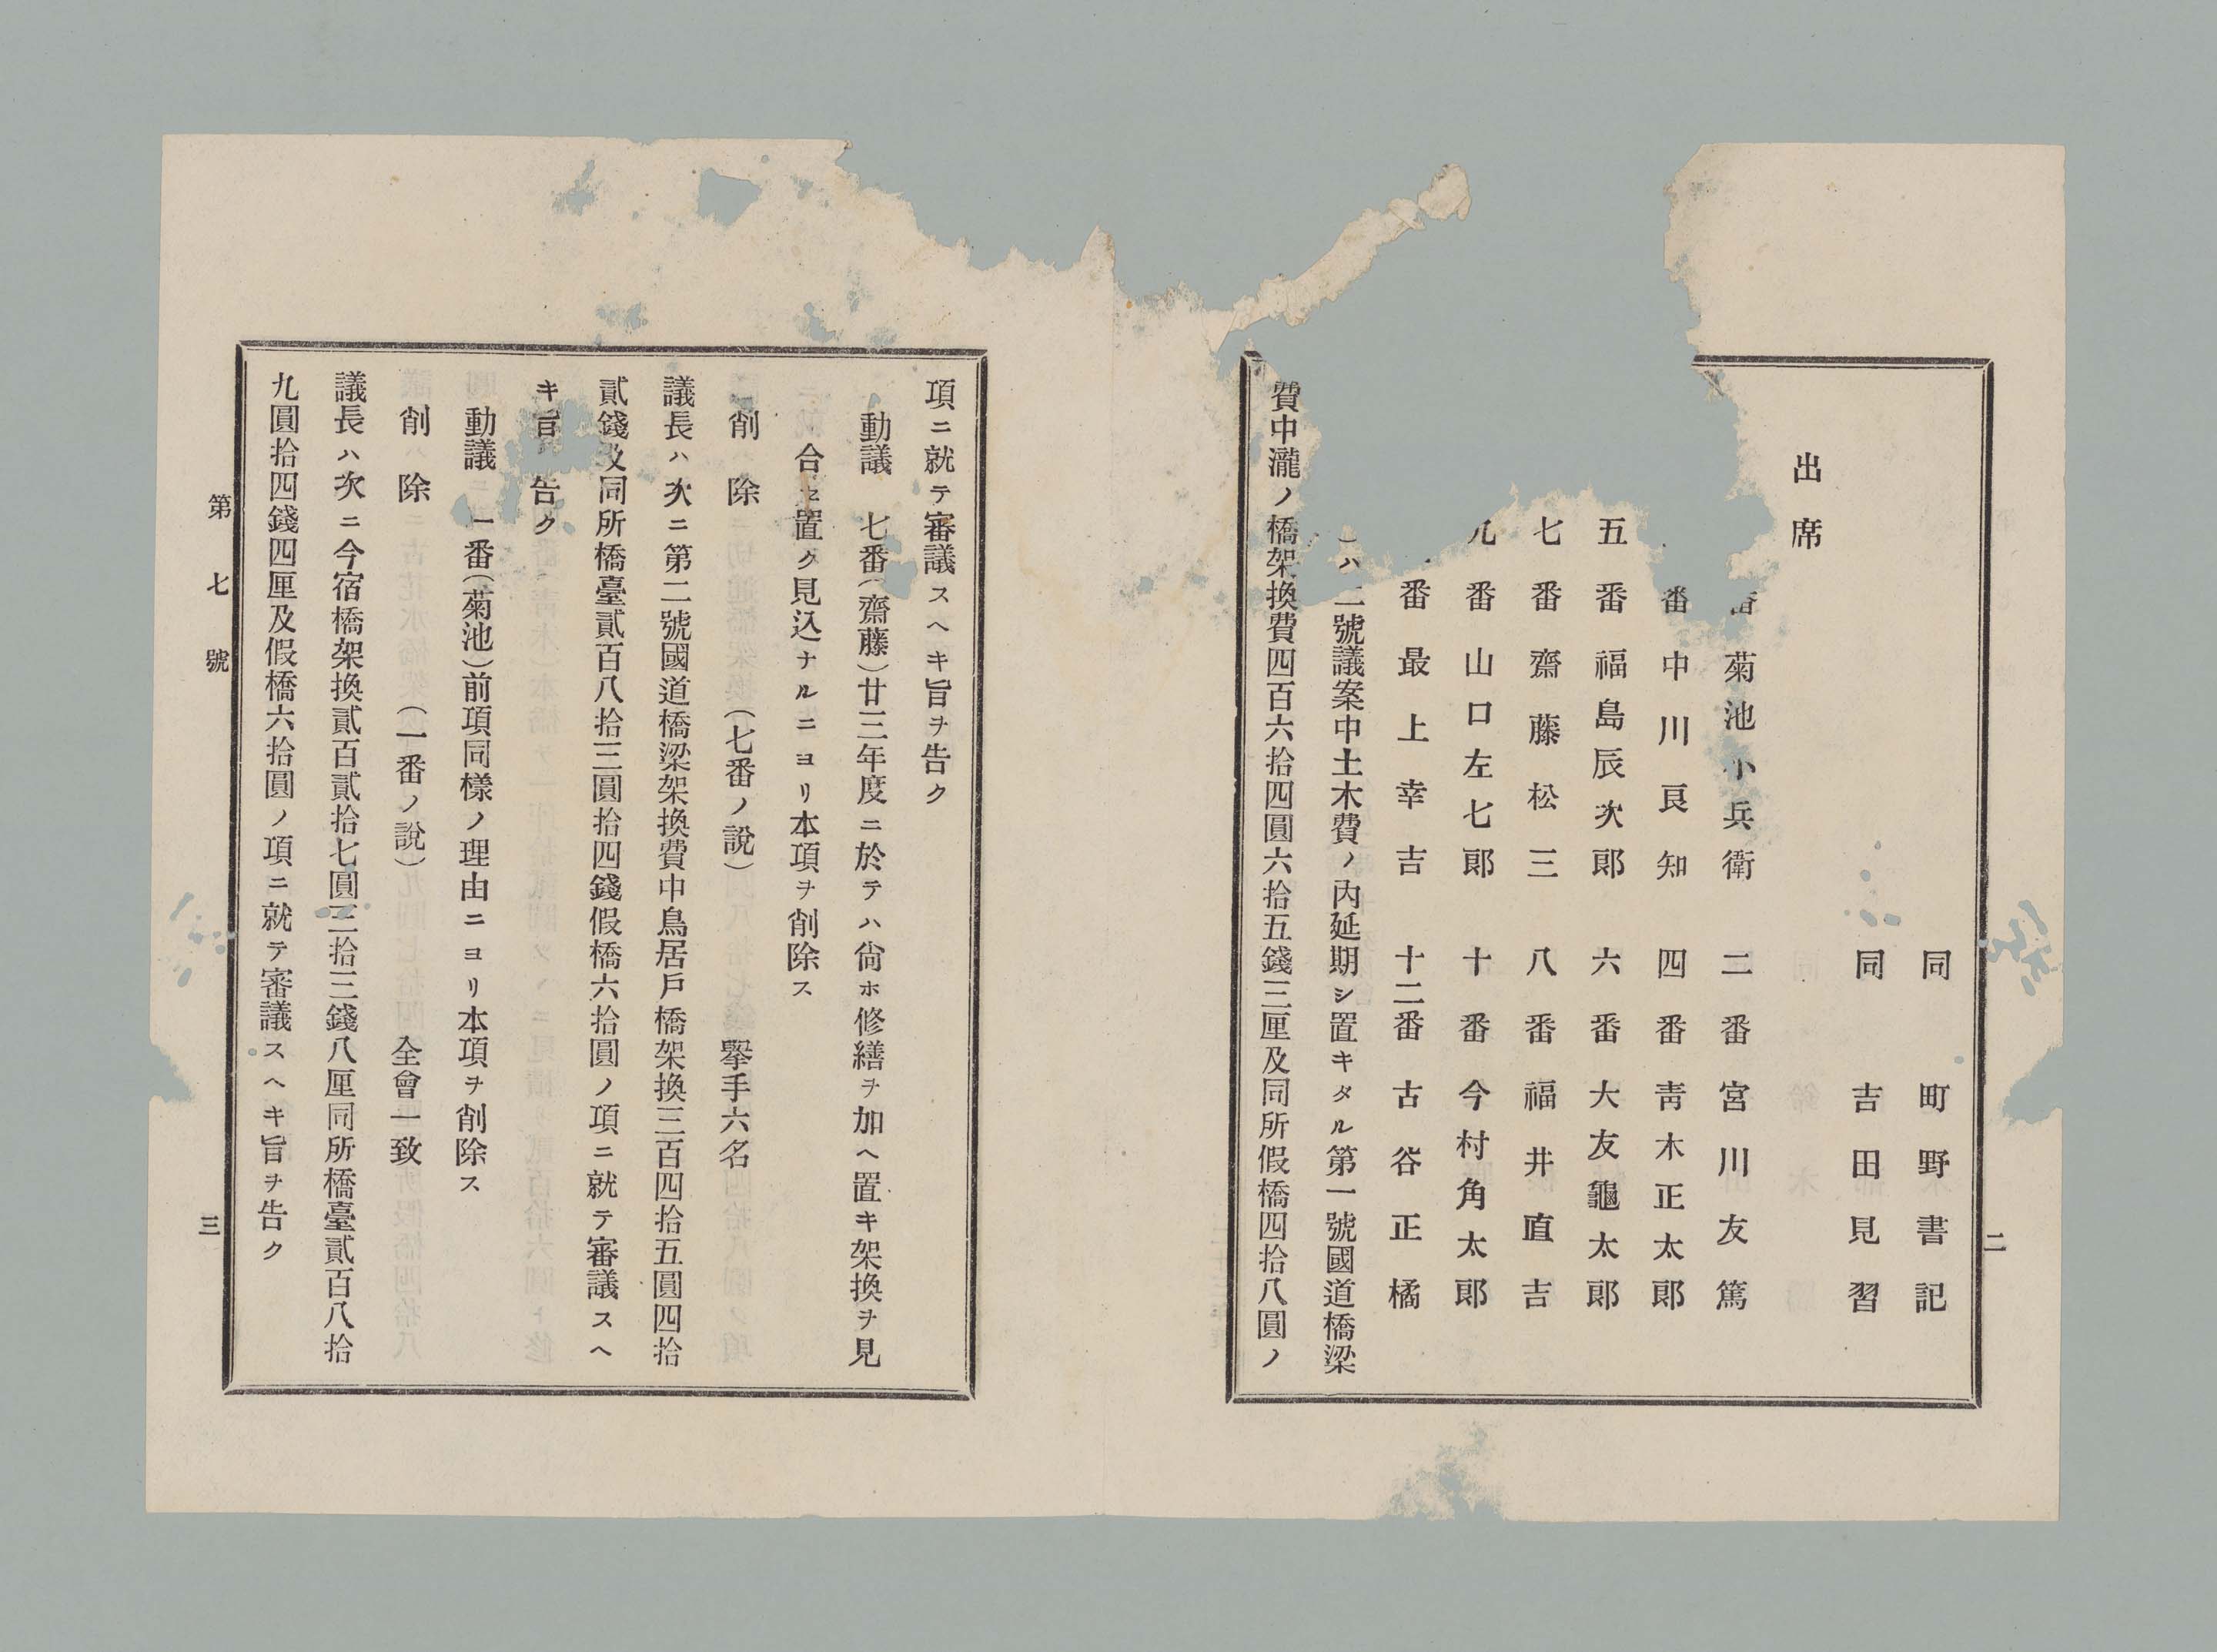 二
同 町野書記
同 吉田見習
出席
番 菊池小兵衛 二番 宮川友篤
番 中川良知 四番 靑木正太郞
五番 福島辰次郞 六番 大友龜太郞
七番 齋藤松三 八番 福井直吉
九番 山口左七郞 十番 今村角太郞
番 最上幸吉 十二番 古谷正橘
ハ二號議案中土木費ノ內延期シ置キタル第一號國道橋梁
費中瀧ノ橋架換費四百六拾四圓六拾五錢三厘及同所假橋四拾八圓ノ
項ニ就テ審議スヘキ旨ヲ告ク
動議 七番（齋藤）廿三年度ニ於テハ尙ホ修繕ヲ加ヘ置キ架換ヲ見
合セ置ク見込ナルニヨリ本項ヲ削除ス
削除 （七番ノ說） 擧手六名
議長ハ次ニ第二號國道橋梁架換費中鳥居戶橋架換三百四拾五圓四拾
貳錢及同所橋臺貳百八拾三圓拾四錢假橋六拾圓ノ項ニ就テ審議スヘ
キ旨 告ク
動議 一番（菊池）前項同樣ノ理由ニヨリ本項ヲ削除ス
削除 （一番ノ說） 全會一致
議長ハ次ニ今宿橋架換貳百貳拾七圓三拾三錢八厘同所橋臺貳百八拾
九圓拾四錢四厘及假橋六拾圓ノ項ニ就テ審議スヘキ旨ヲ告ク
第七號 三